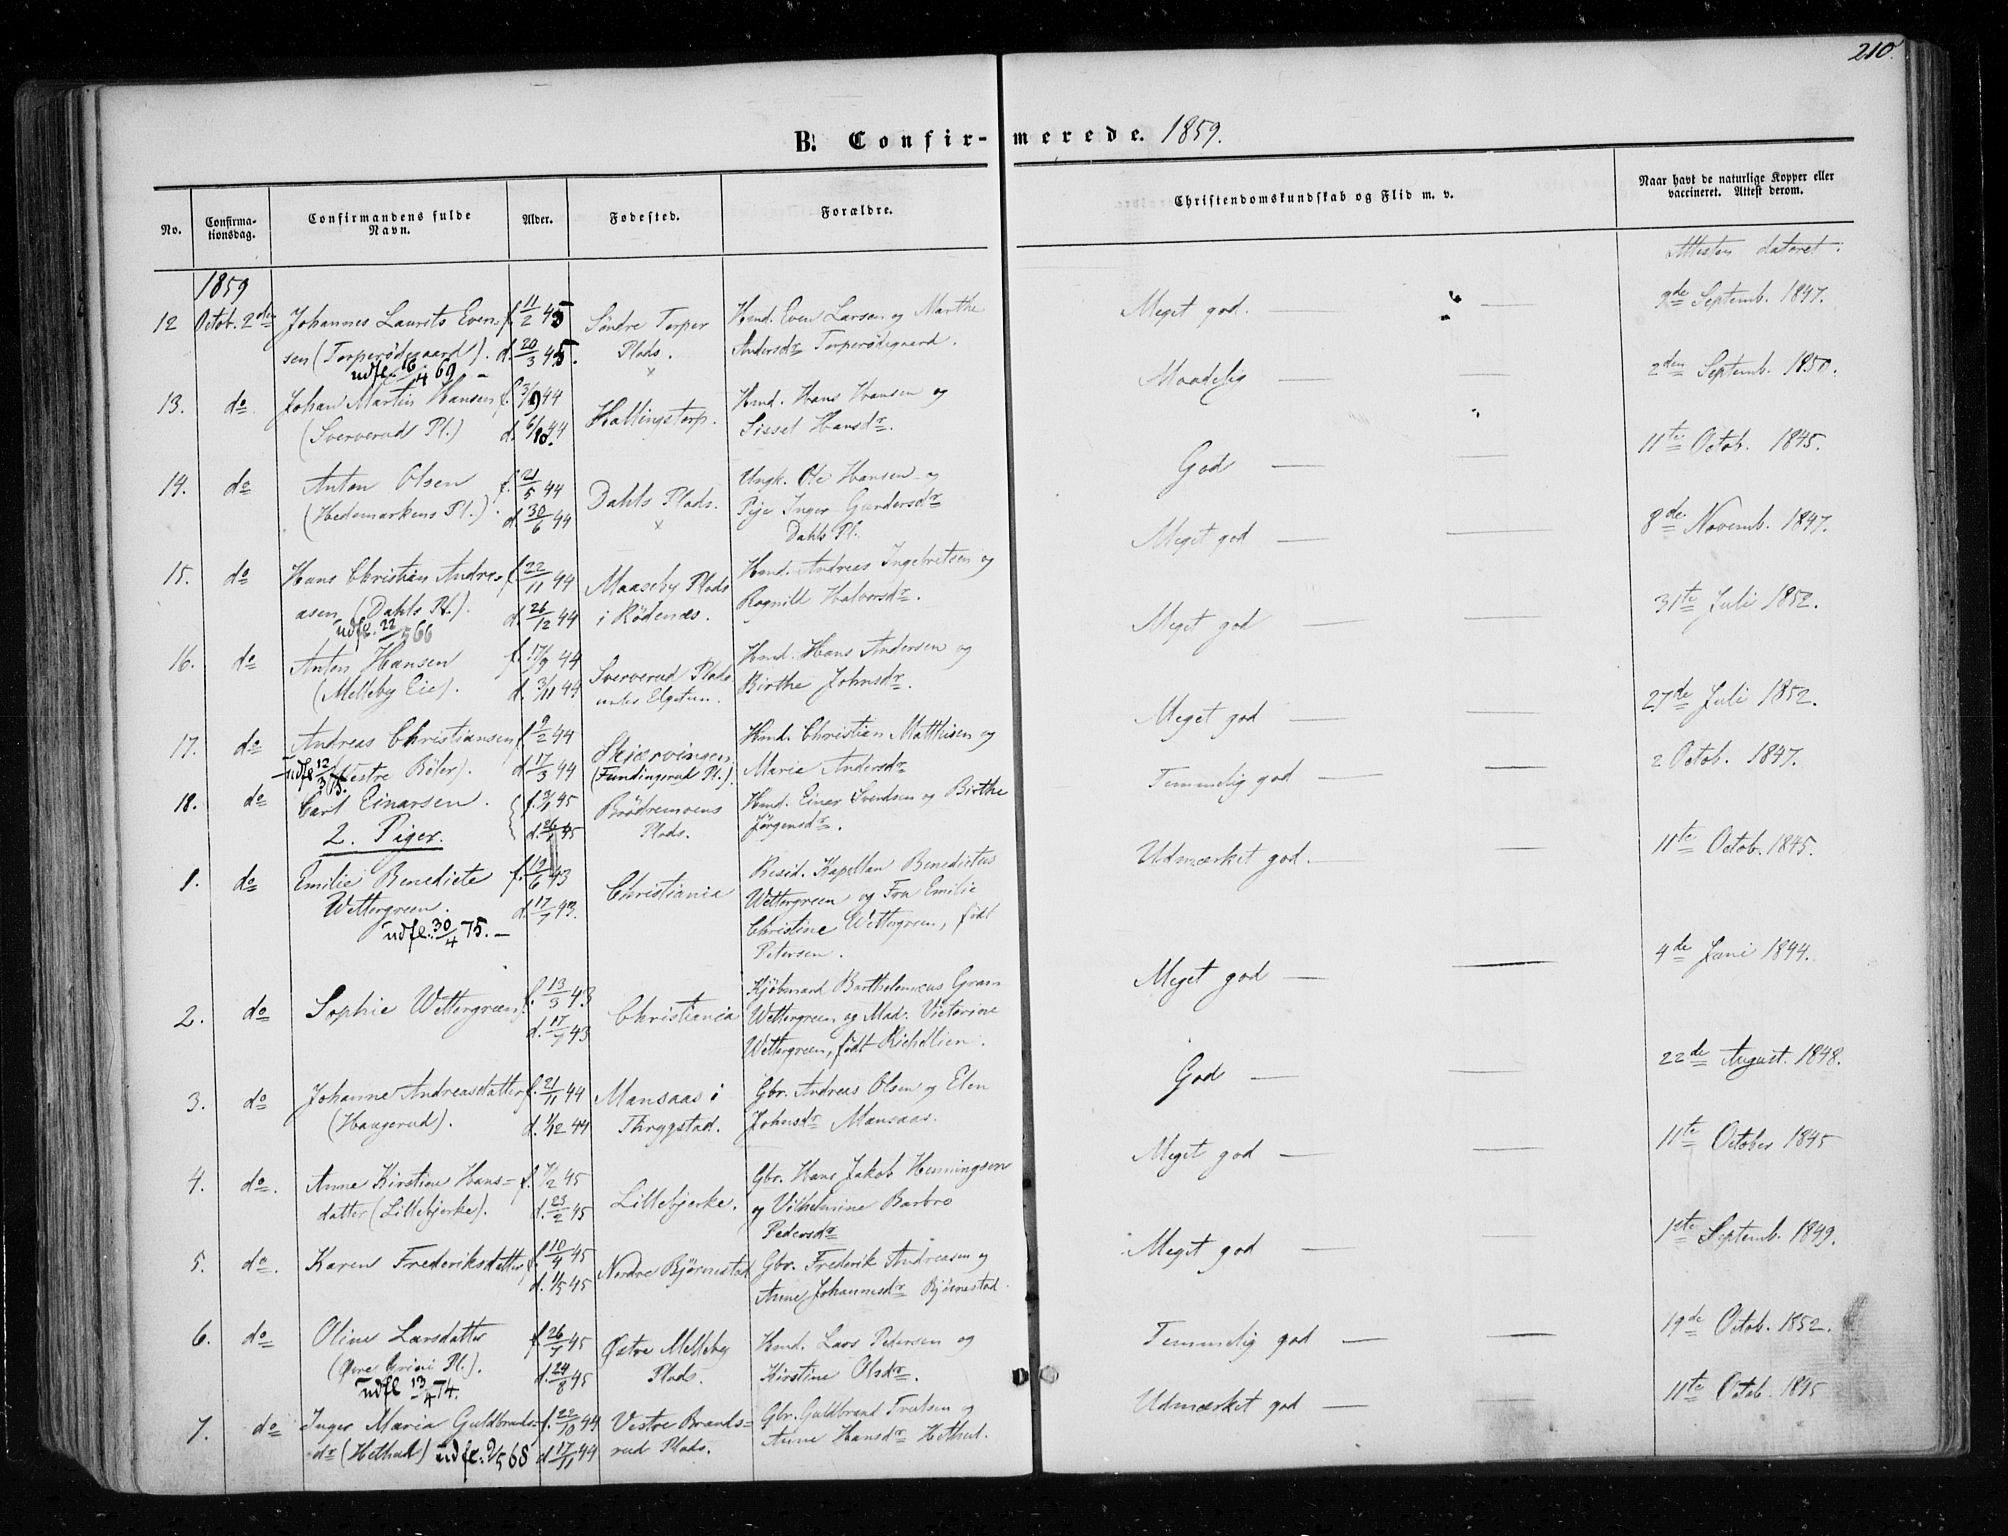 210.
B. Confirmerede. 1859.
No.
Confirma-
tionsdag.
Confirmandens fulde
Navn.
Alder.
Fødested.
Forældre.
Christendomskundskab og Flid m. v.
Naar havt de naturlige Kopper eller
vaccineret. Attest derom.
Attesten dateret:
1859
12 Octob. 2den Johannes Laurits Even- f. 11/2 45 Søndre Torper Hmd. Even Larsen og Marthe Meget god. — — 9de Septemb. 1847.
sen (Torperødegaard). d. 20/3 45. Plads. Andersdr Torperødegaard.
udfl. 16/4 69 — x
13. do. Johan Martin Hansen f. 3/9 44 Hallingstorp. Hmd. Hans Hansen og Maadelig — — 2den Septemb. 1850.
(Sververud Pl.) d. 6/10 44 Sissel Hansdr.
14. do Anton Olsen f. 21/5 44 Dahls Plads. Ungk. Ole Hansen og God — — 11te Octob. 1845.
(Hedemarkens Pl.). d. 30/6 44 x Pige Inger Gundersdr
Dahls Pl.
15. do Hans Christian Andre- f. 22/11 44 Maaseby Plads Hmd. Andreas Ingebretsen og Meget god — — 8de Novemb. 1847.
asen (Dahls Pl.). d. 26/12 44 i Rødenæs. Ragnild Halvorsdr.
udfl. 22/5 66
16. do Anton Hansen f. 17/9 44 Sververud Plads Hmd. Hans Andersen og Meget god — — 31te Juli 1852.
(Melleby Eie). d. 3/11 44 under Elgetun. Birthe Johnsdr.
17. do Andreas Christiansen f. 9/2 44 Skjærvingen Hmd. Christian Matthisen og Meget god — — 27de Juli 1852.
udfl. 12/3 75. (Vestre Bøler). d. 17/3 44 (Fundingsrud Pl.). Marie Andersdr
18. do Carl Einarsen. f. 3/1 45 Brødremoens Hmd. Einer Svendsen og Birthe Temmelig god — — 2 Octob. 1847.
d. 26/1 45 Plads. Jørgensdr.
2. Piger.
1. do Emilie Benedicte f. 12/6 43 Christiania Resid. Kapellan Benedictus Udmærket god. — — 11te Octob. 1845.
Wettergreen. d. 17/7 43. Wettergreen og Fru Emilie
udfl. 30/4 75. — Christine Wettergreen, født
Petersen.
2. do Sophie Wettergreen f. 13/3 43 Christiania Kjøbmand Bartholomæus Gram Meget god — — 4de Juni 1844.
d. 17/7 43 Wettergreen og Mad. Victorine
Wettergreen, født Richellien.
3. do Johanne Andreasdatter f. 21/11 44 Mansaas i Gbr. Andreas Olsen og Elen God — — 22de August. 1848.
(Haugerud). d. 1/12 44 Thrygstad. Johnsdr Mansaas.
4. do. Anne Kirstine Hans= f. 7/2 45 Lillebjerke. Gbr. Hans Jakob Hemingsen Meget god — — 11te October 1845
datter (Lillebjerke). d. 23/2 45 og Vilhelmine Barbro
Pedersdr
5. do. Karen Frederiksdatter f. 10/4 45 Nordre Bjørnestad Gbr. Frederik Andreasen og Meget god — — 1ste Septemb. 1849.
d. 1/5 45 Anne Johannesdr Bjørnestad.
6. do Oline Larsdatter f. 26/7 45 Østre Melleby Hmd. Lars Petersen og Temmelig god — — 19de Octob. 1852.
(Øvre Grini Pl.). d. 24/8 45 Plads. Kirstine Olsdr.
udfl 13/4 74.
7. do Inger Maria Guldbrands- f. 22/10 44 Vestre Brands= Gbr. Guldbrand Trulsen og Udmærket god — — 11te Octob. 1845
dr (Hethul) udfl. 9/5 68 d. 17/11 44 rud Plads. Anne Hansdr Hethul.